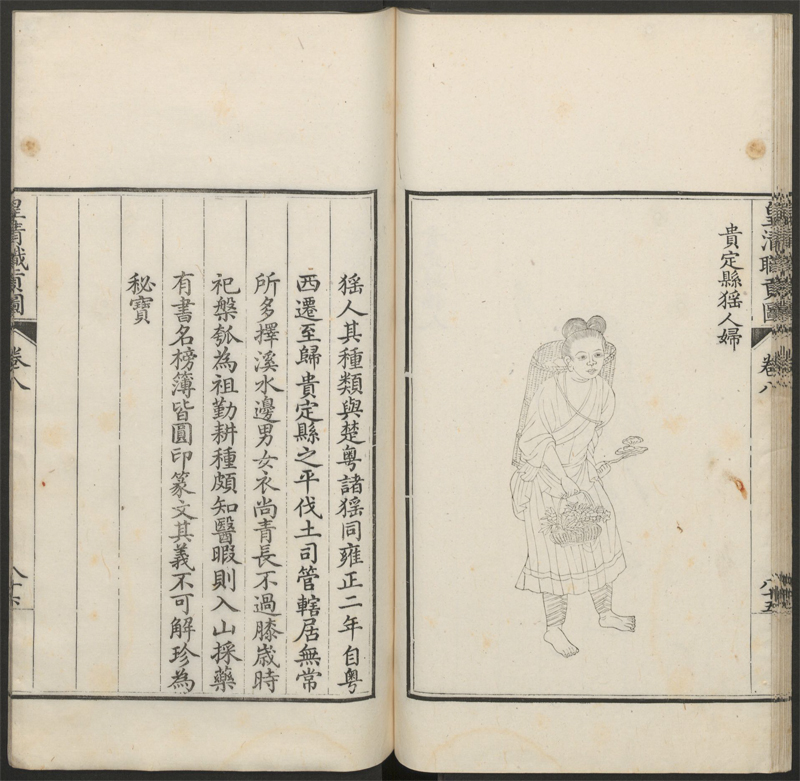 皇清職貢圖
卷八
八十五
貴定縣猺人婦
猺人其種類與楚粤諸猺同雍正二年自粤
西遷至歸貴定縣之平伐土司管轄居無常
所多擇溪水邊男女衣尚青長不過膝歲時
祀槃瓠為祖勤耕種頗知醫暇則入山採藥
有書名榜簿皆圓印篆文其義不可解珍為
秘寶
皇清職貢圖
卷八
八十六